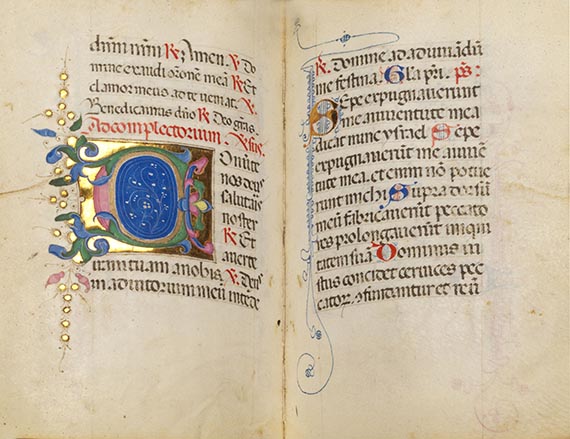 dnm nrm R Amen. V Do
mine exaudi orone mea R Et
clamor meus ad te veniat. V
Benedicamus dno R Deo gras.
Ad complectorium. Vsus.
Onuite
nos deus
salutaris
noster
R Et
averte
iram tuam a nobis. V Deus
in adiutorium meu intede
R. Domine ad adiuvandu
me festina. Gla pri. ps:
Sepe expugnaverunt
me a iuventute mea
dicat nunc ysrael. Sepe
expugnaverunt me a iuven
tute mea. et enim non potue
runt michi. Supra dorsum
meu fabricaverunt peccato
res prolongaverunt iniqui
tatem sua. Dominus iu
stus concidet cervices pec
cator. 9fundantur et reve